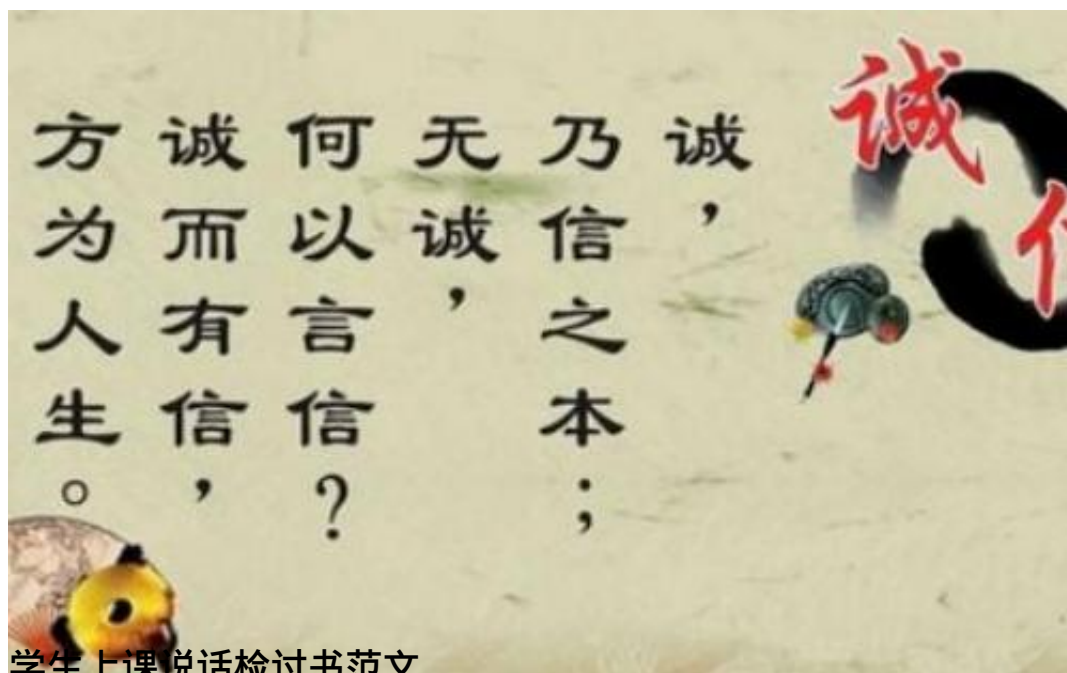 诚信
诚，
乃信之本；
无诚，
何以言信？
诚而有信，
方为人生。
学生上课说话检讨书范文